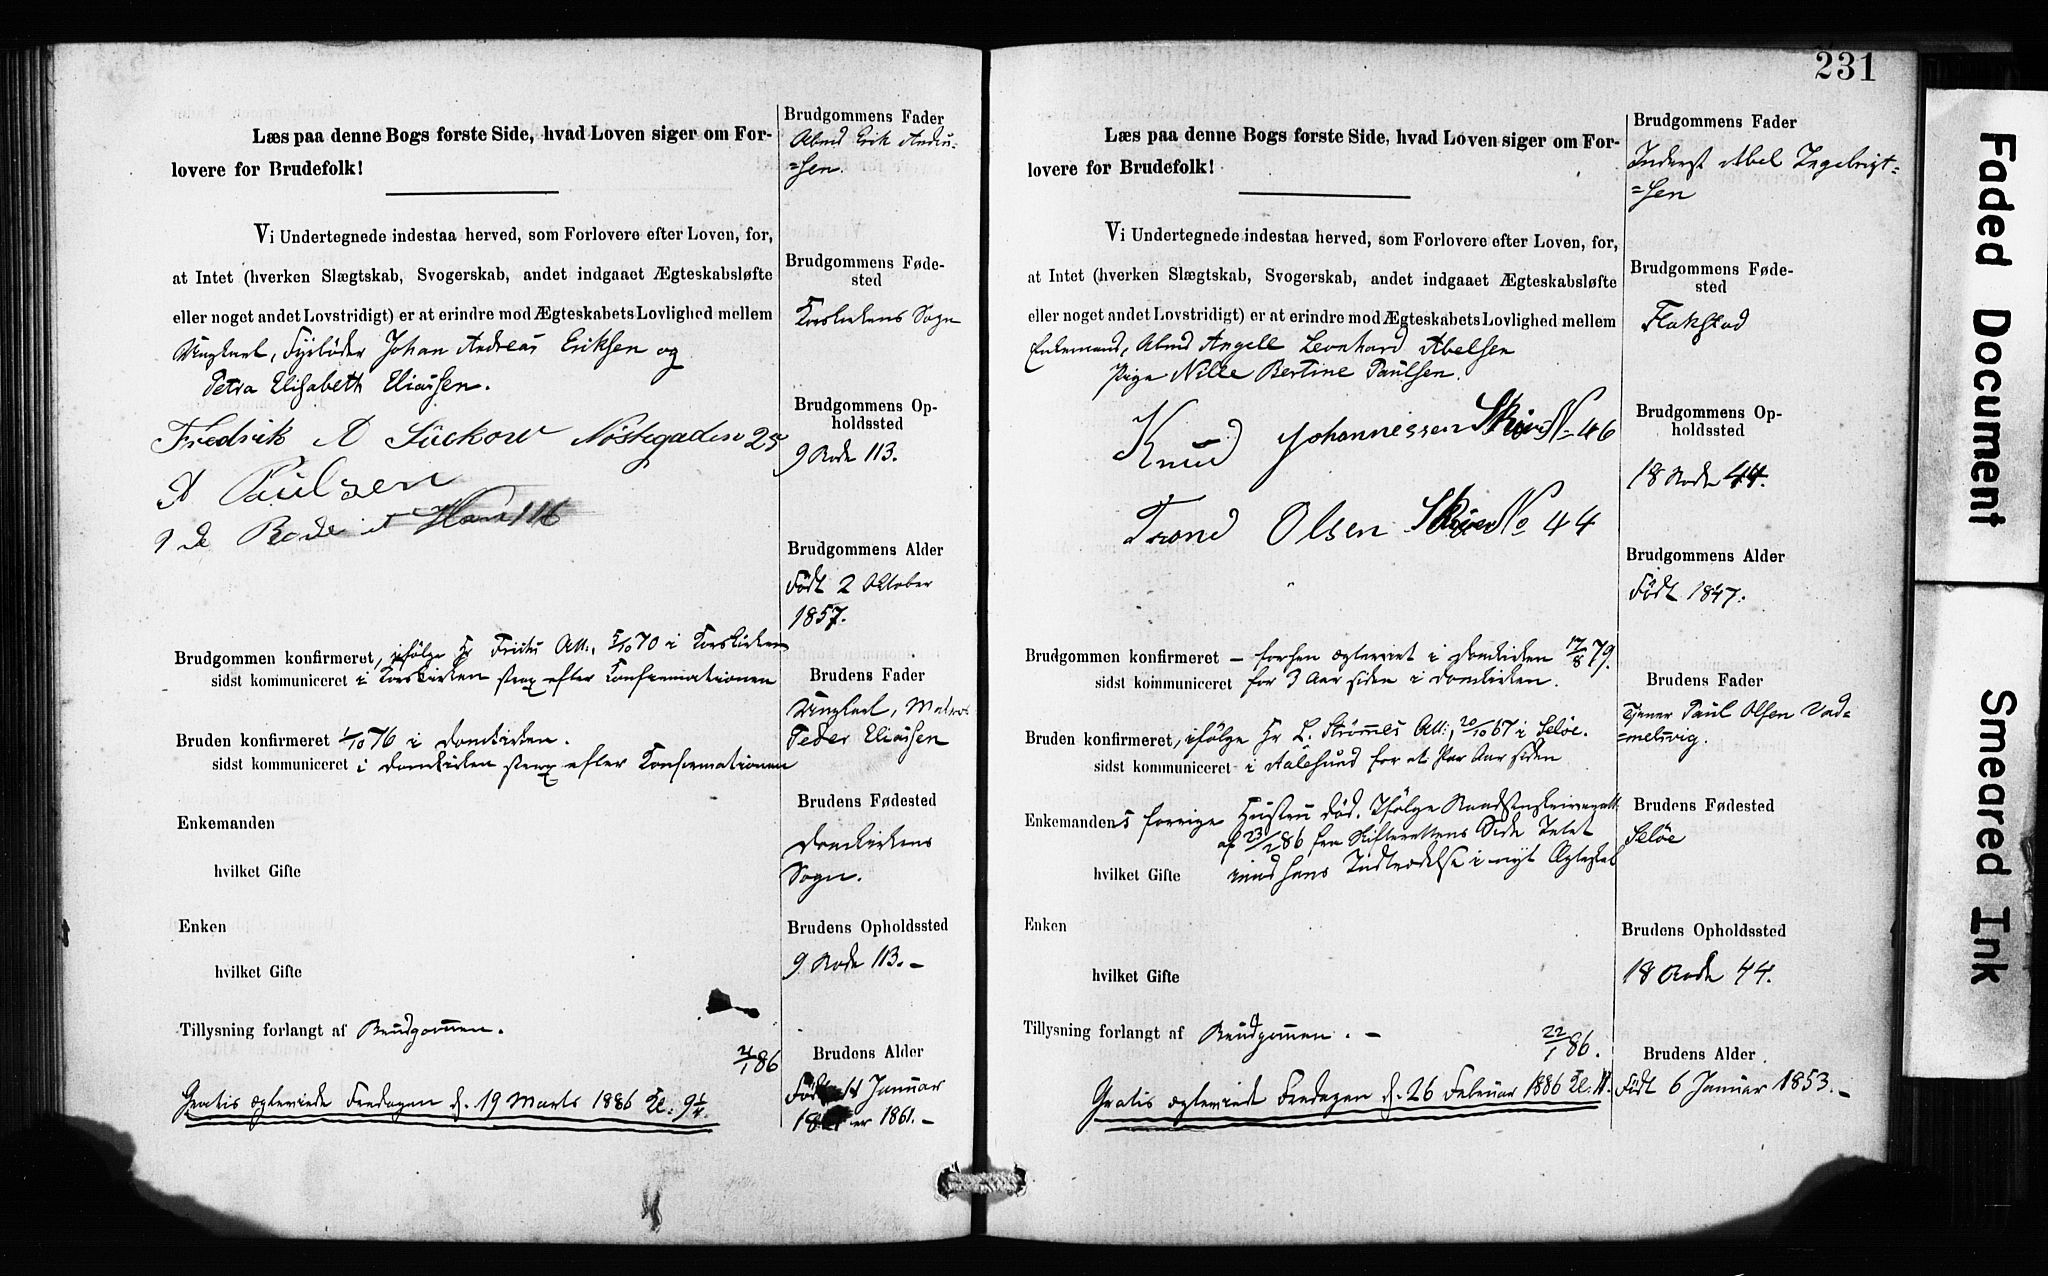 Læs paa denne Bogs første Side, hvad Loven siger om For-
lovere for Brudefolk!
Vi Undertegnede indestaa herved, som Forlovere efter Loven, for,
at Intet (hverken Slægtskab, Svogerskab, andet indgaaet Ægteskabsløfte
eller noget andet Lovstridigt) er at erindre mod Ægteskabets Lovlighed mellem
Ungkarl, Fyrbøder Johan Andreas Eriksen og
Petra Elisabeth Eliassen.
Fredrik A Sückow Nøstegaden 25
A Paulsen
9 de Rode
Brudgommen konfirmeret, ifølge Hr Att:, 5/10 70 i Korskirken
sidst kommuniceret i Korskirken strax efter Konfirmationen
Bruden konfirmeret 1/10 76 i Domkirken.
sidst kommuniceret i Domkirken strax efter Konfirmationen
Enkemanden
hvilket Gifte
Enken
hvilket Gifte
Tillysning forlangt af Brudgommen.
/1 86
Gratis ægteviede Fredagen d. 19 Marts 1886 Kl. 9
Brudgommens Fader
Arbmd Erik Andr
=sen.
Brudgommens Føde-
sted
Korskirkens Sogn
Brudgommens Op-
holdssted
9 Rode 113.
Brudgommens Alder
Født 2 Oktober
1857.
Brudens Fader
Ungkarl, Matros
Peder Eliassen
Brudens Fødested
Domkirkens
Sogn.
Brudens Opholdssted
9 Rode 113.-
Brudens Alder
Født Januar
er 1861.-
231
Læs paa denne Bogs første Side, hvad Loven siger om For-
lovere for Brudefolk!
Vi Undertegnede indestaa herved, som Forlovere efter Loven, for,
at Intet (hverken Slægtskab, Svogerskab, andet indgaaet Ægteskabsløfte
eller noget andet Lovstridigt) er at erindre mod Ægteskabets Lovlighed mellem
Enkemand, Arbmd Angell Leonhard Abelsen
Pige Nille Bertine Paulsen.
Knud Johannessen Skiven No 46
Trond Olsen Skiven No 44
Brudgommen konfirmeret - forhen ægteviet i Domkirken 17/8 79.
sidst kommuniceret for 3 Aar siden i Domkirken.
Bruden konfirmeret, ifølge Hr L. Strømmes Att:, 20/10 67 i Seløe.
sidst kommuniceret - i Aalesund for et Par Aar siden
Enkemandens forrige Hustru død. Ifølge
af 23/2 86 fra Skifterettens Side Intet
hvilket Gifte mod hans Indtrædelse i nyt Ægteskab
Enken
hvilket Gifte
Tillysning forlangt af Brudgommen. -
22/1 86.
Gratis ægteviede Fredagen d. 26 Februar 1886 Kl. 11.
Brudgommens Fader
Inderst Abel Ingebrigt=
=sen
Brudgommens Føde-
sted
Flakstad
Brudgommens Op-
holdssted
18 Rode 44.
Brudgommens Alder
Født 1847.
Brudens Fader
Tjener Paul Olsen Vad=
=melsvig.
Brudens Fødested
Seløe
Brudens Opholdssted
18 Rode 44.
Brudens Alder
Født 6 Januar 1853.-
Faded Document
Smeared Ink